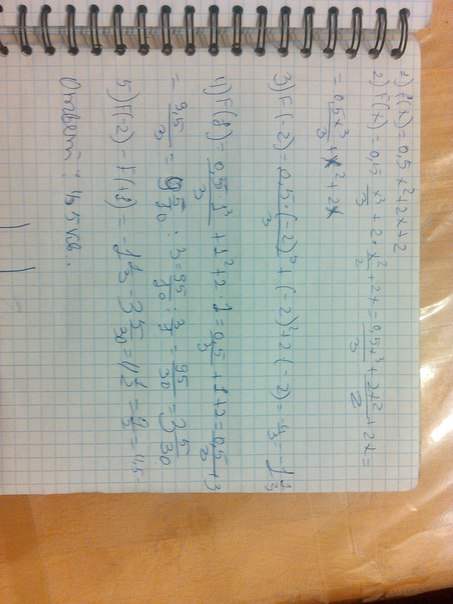 1) f(x) = 0,5x² + 2x + 2
2) F(x) = 0,5 x³/3 + 2·x²/2 + 2x = 0,5x³/3 + 2x²/2 + 2x =
= 0,5x³/3 + x² + 2x
3) F(-2) = 0,5·(-2)³/3 + (-2)² + 2(-2) = -4/3 = -1 1/3
4) F(1) = 0,5·1³/3 + 1² + 2·1 = 0,5/3 + 1 + 2 = 0,5/3 + 3
= 9,5/3 = 95/10 : 3 = 95/10 : 3/1 = 95/30 = 3 5/30
5) F(-2) - F(1) = -1 1/3 - 3 5/30 = 4 1/2 = 9/2 = 4,5
Ответ: 4,5